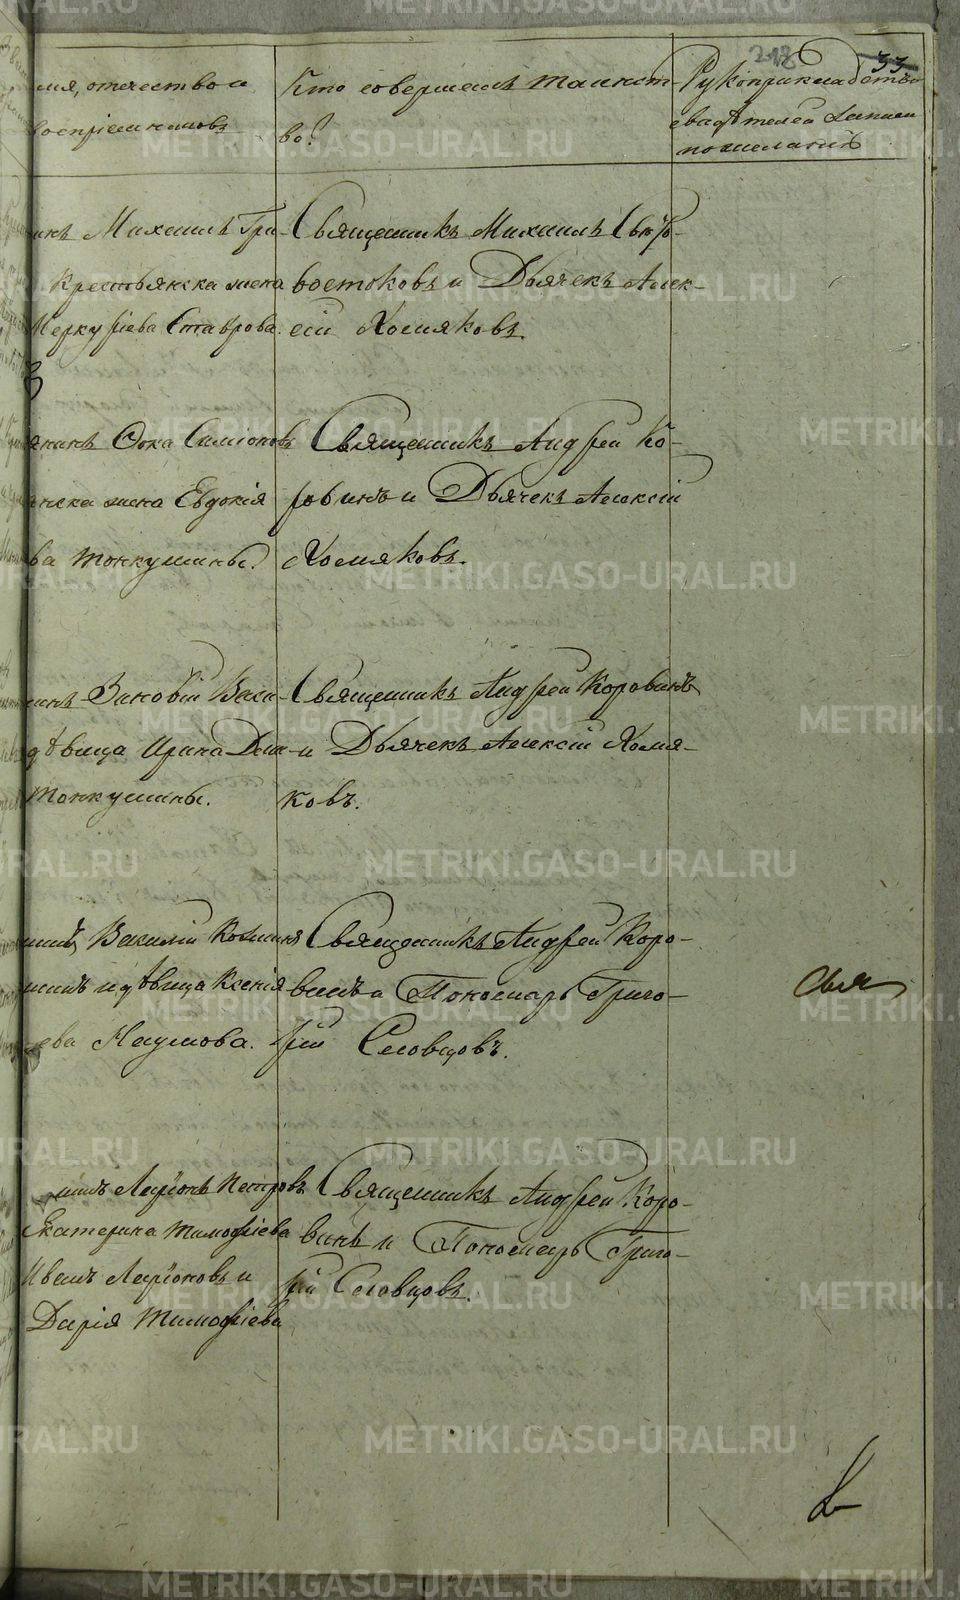 218 33
имя, отчество и
воспріемниковъ
Кто совершалъ таинст-
во?
Рукоприкладство
свидѣтелей записи
по желанію
инъ Михаилъ Гри-
Крестьянска жена
Меркуріева Ставрова.
Священникъ Михаилъ Свѣто-
востоковъ и Дьячекъ Алек-
сій Хомяковъ.
янинъ Ѳока Симіоновъ
янска жена Евдокія
ва Тонкушины.
Священникъ Андрей Ко-
ровинъ и Дьячекъ Алексій
Хомяковъ.
нинъ Зиновій Васи-
дѣвица Ирина Дми-
Тонкушины.
Священникъ Андрей Коровинъ
и Дьячекъ Алексій Хомя-
ковъ.
Василій Козминъ
и дѣвица Ксенія
ева Наумова.
Священникъ Андрей Коро-
винъ и Пономарь Григо-
рій Словцовъ.
Ларіонъ Петровъ
Екатерина Тимофіева
Иванъ Ларіоновъ и
Дарія Тимофіева
Священникъ Андрей Коро-
винъ и Пономарь Григо-
рій Словцовъ.
METRIKI.GASO-URAL.RU